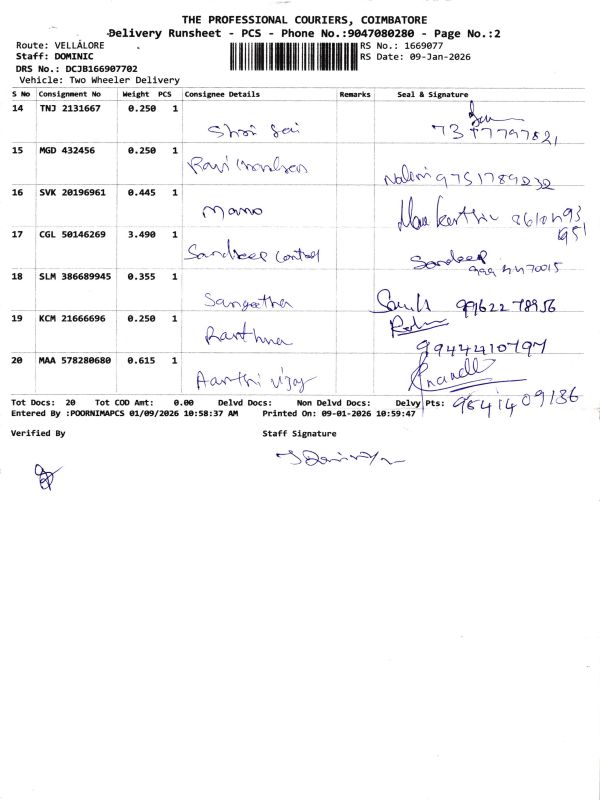 THE PROFESSIONAL COURIERS, COIMBATORE
Delivery Runsheet - PCS - Phone No.:9047080280 - Page No.:2
Route: VELLALORE
RS No.: 1669077
Staff: DOMINIC
RS Date: 09-Jan-2026
DRS No.: DCJB166907702
Vehicle: Two Wheeler Delivery
S No Consignment No Weight PCS Consignee Details Remarks Seal & Signature
14 TNJ 2131667 0.250 1
Shri Sai
15 MGD 432456 0.250 1
Ravi
Nalini 9751789232
16 SVK 20196961 0.445 1
Mano
17 CGL 50146269 3.490 1
Sandeep Control
Sandeep
18 SLM 386689945 0.355 1
Sangeetha
99622 78956
19 KCM 21666696 0.250 1
Ranthna
9944410797
20 MAA 578280680 0.615 1
Aarthi Vijay
Tot Docs: 20 Tot COD Amt: 0.00 Delvd Docs: Non Delvd Docs: Delvy Pts:
9541409186
Entered By :POORNIMAPCS 01/09/2026 10:58:37 AM Printed On: 09-01-2026 10:59:47
Verified By Staff Signature